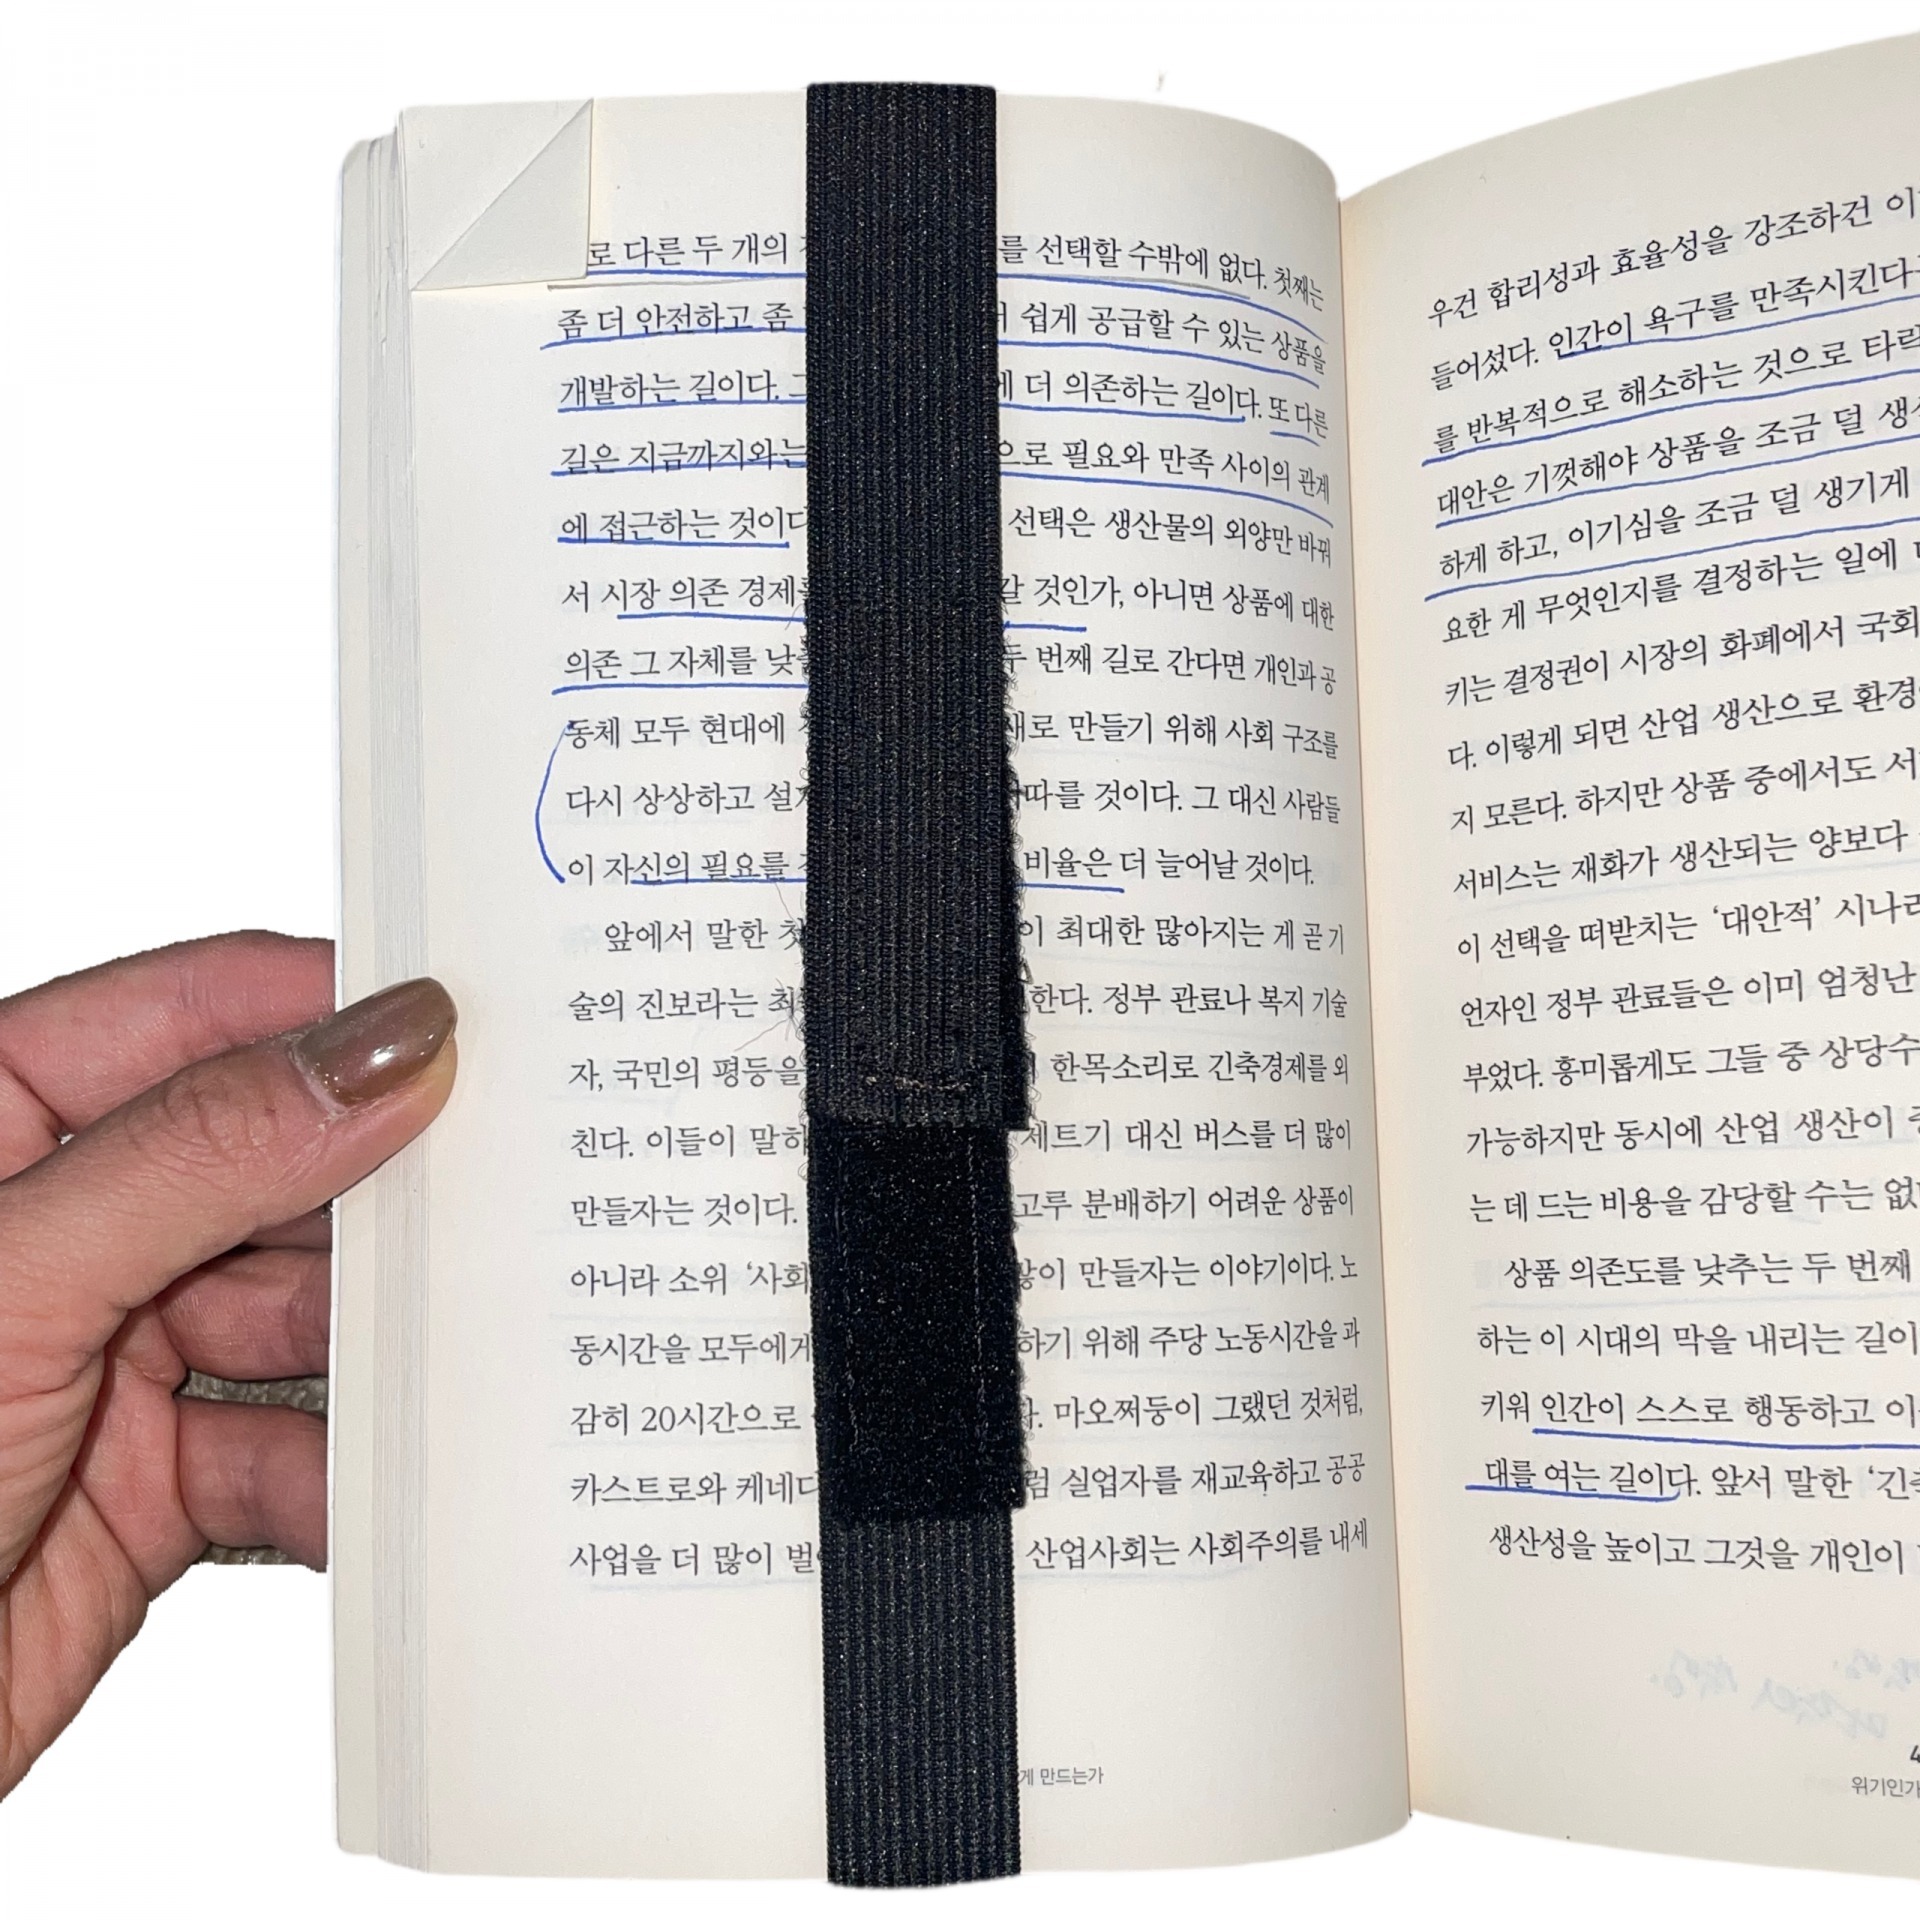 로 다른 두 개의 를 선택할 수밖에 없다. 첫째는
좀 더 안전하고 좀 쉽게 공급할 수 있는 상품을
개발하는 길이다. 에 더 의존하는 길이다. 또 다른
길은 지금까지와는 으로 필요와 만족 사이의 관계
에 접근하는 것이다 선택은 생산물의 외양만 바꿔
서 시장 의존 경제를 갈 것인가, 아니면 상품에 대한
의존 그 자체를 낮출 두 번째 길로 간다면 개인과 공
동체 모두 현대에 새로 만들기 위해 사회 구조를
다시 상상하고 설계 따를 것이다. 그 대신 사람들
이 자신의 필요를 비율은 더 늘어날 것이다.
앞에서 말한 첫 이 최대한 많아지는 게 곧 기
술의 진보라는 최 한다. 정부 관료나 복지 기술
자, 국민의 평등을 한목소리로 긴축경제를 외
친다. 이들이 말하 제트기 대신 버스를 더 많이
만들자는 것이다. 고루 분배하기 어려운 상품이
아니라 소위 ‘사회 많이 만들자는 이야기이다. 노
동시간을 모두에게 하기 위해 주당 노동시간을 과
감히 20시간으로 마오쩌둥이 그랬던 것처럼,
카스트로와 케네디 럼 실업자를 재교육하고 공공
사업을 더 많이 벌 산업사회는 사회주의를 내세
게 만드는가
우건 합리성과 효율성을 강조하건 이
들어섰다. 인간이 욕구를 만족시킨다
를 반복적으로 해소하는 것으로 타락
대안은 기껏해야 상품을 조금 덜 생
하게 하고, 이기심을 조금 덜 생기게
요한 게 무엇인지를 결정하는 일에
키는 결정권이 시장의 화폐에서 국회
다. 이렇게 되면 산업 생산으로 환경
지 모른다. 하지만 상품 중에서도 서
서비스는 재화가 생산되는 양보다
이 선택을 떠받치는 ‘대안적’ 시나리
언자인 정부 관료들은 이미 엄청난
부었다. 흥미롭게도 그들 중 상당수
가능하지만 동시에 산업 생산이 증
는 데 드는 비용을 감당할 수는 없
상품 의존도를 낮추는 두 번째
하는 이 시대의 막을 내리는 길이
키워 인간이 스스로 행동하고 이
대를 여는 길이다. 앞서 말한 ‘긴축
생산성을 높이고 그것을 개인이
위기인가